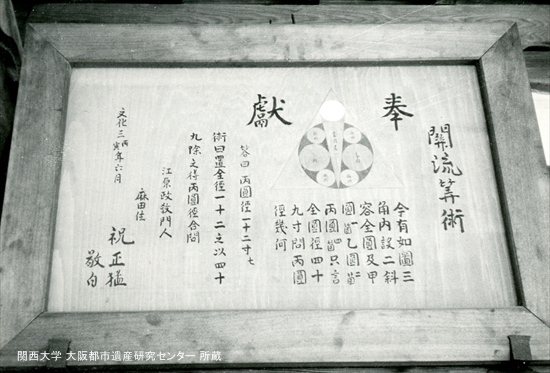 奉
獻
關流筭術
今有如圖三
角内設二斜
容全圓及甲
圓一乙圓二
丙圓四只言
全圓徑四十
九寸問丙圓
徑幾何
答曰丙圓徑一十二寸七
術曰置全徑一十二之以四十
九除之得丙圓徑合問
江原政敎門人
麻田住
祝正猛
敬白
文化三丙寅年六月
関西大学 大阪都市遺産研究センター 所蔵